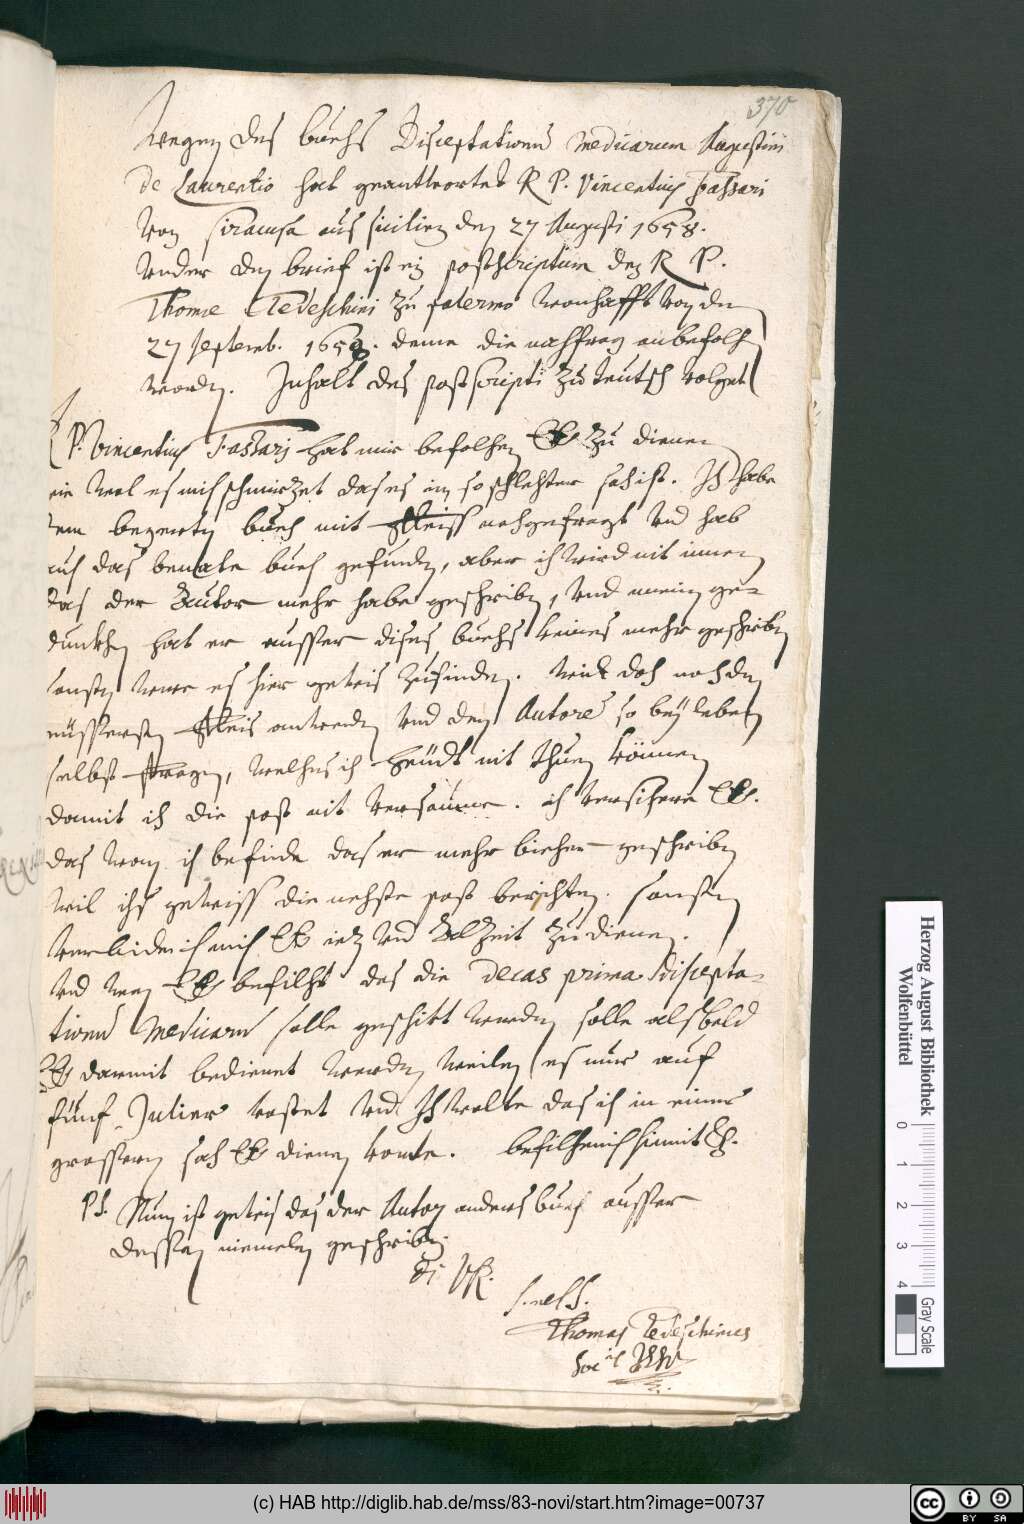 370
Wegen des buechs Disceptationum medicarum Augustini
de Laurentio hat geantwortet R P. Vincentius Fassari
von Siracusa aus Sicilien den 27 Augusti 1658.
Under den brief ist ein postscriptum des R P.
Thomæ Tedeschini zu Palermo wonhafft von dem
27 Septemb. 1658. deme die nachfrag anbefolhen
worden. Inhalt des postscripti zu teutsch volget
P. Vincentius Fassari hat mir befolhen EE zu dienen
wie wol es mich schmirzet das es in so schlechter sach ist. Ich habe
dem begerten buech mit fleiss nachgefragt und hab
auch das benante buech gefunden, aber ich wird nit innen
das der Autor mehr habe geschriben, und meinem ge-
dunkhen hat er ausser dises buechs keines mehr geschriben
sonsten were es hier gewis zufinden. Wird doch noch den
eüssersten fleis anwenden und den Autore so bey leben
selbst fragen, welches ich heüdt nit thuen können
damit ich die post nit versäume. ich versichere EE.
das wan ich befinde das er mehr biecher geschriben
wil ichs gewiss die nehste post berichten. sonsten
verbinde ich mich EE iez und Alzeit zu dienen.
und wan EE befilht das die Decas prima discepta-
tionum Medicarum solle geschikt werden solle alsbald
EE darmit bedienet werden weilen es nur auf
fünf Julier kostet und Ich wolte das ich in einer
grossern sach EE dienen konte. befilhe mich hiemit EE.
PS. Nun ist gewis das der Autor anders buech ausser
dessen niemalen geschriben.
di VR.
Thomas Tedeschinus
Herzog August Bibliothek
Wolfenbüttel
0 1 2 3 4
Gray Scale
(c) HAB http://diglib.hab.de/mss/83-novi/start.htm?image=00737
cc BY SA